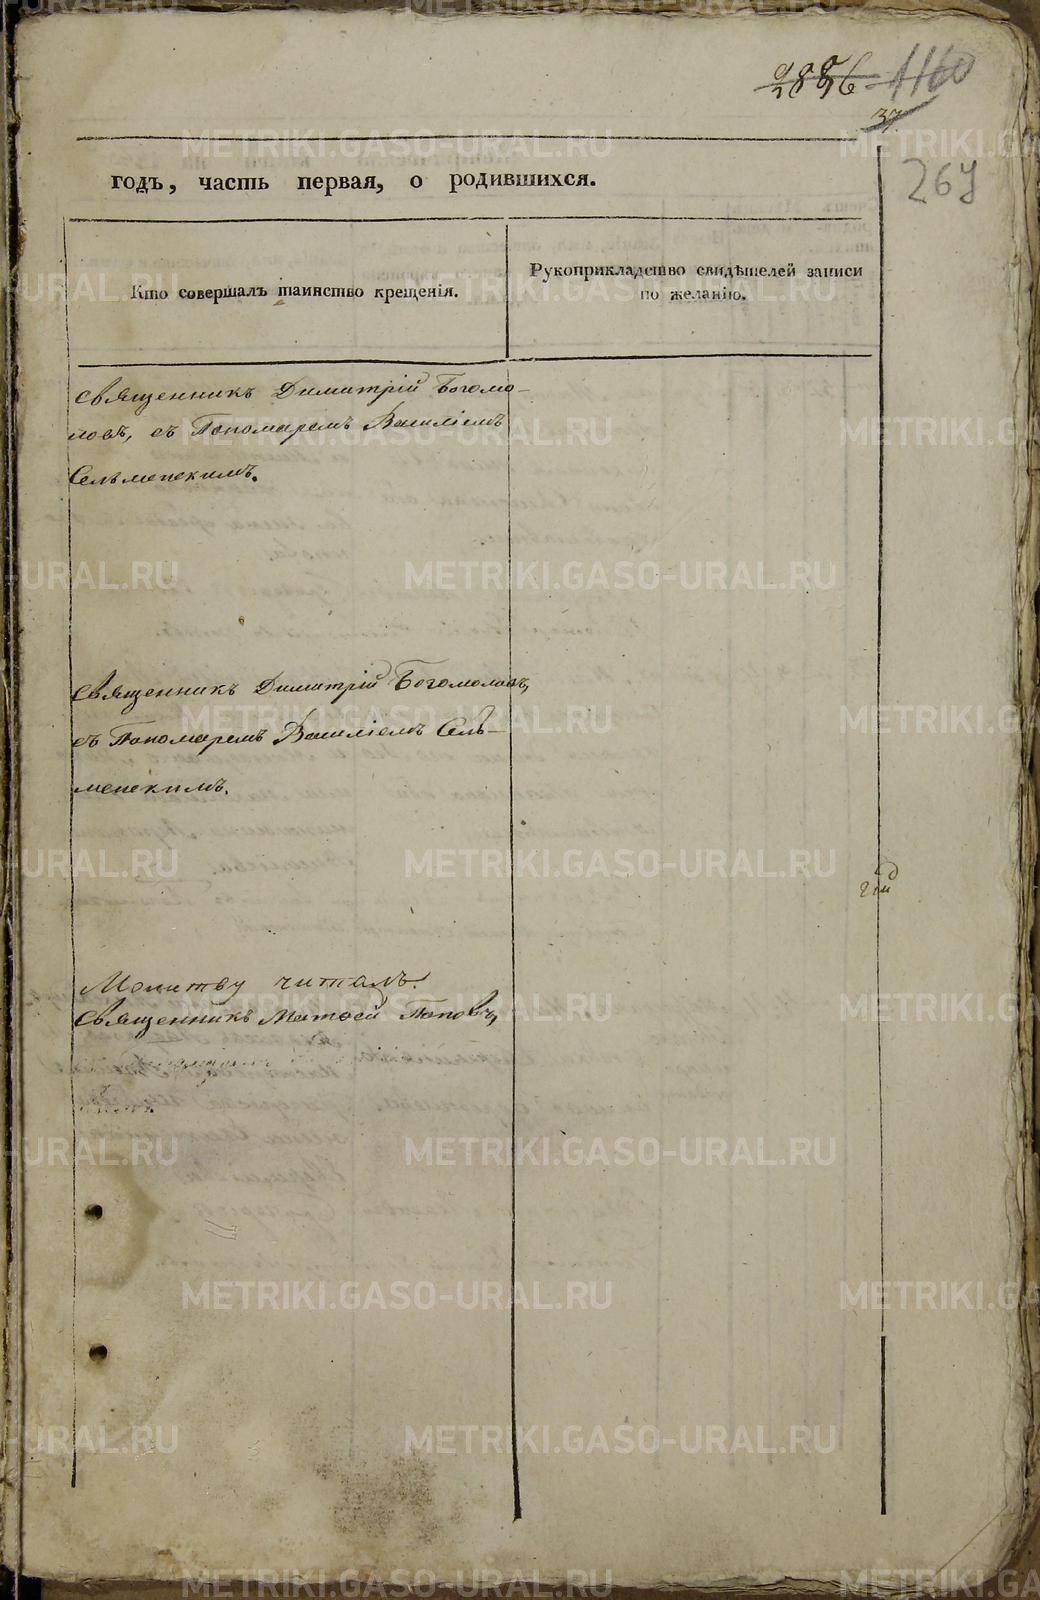 2886
1160
37
267
годъ, часть первая, о родившихся.
Кто совершалъ таинство крещенія.
Рукоприкладство свидѣтелей записи
по желанію.
Священникъ Димитрій Богомо-
ловъ, съ Пономаремъ Василіемъ
Сельменскимъ.
Священникъ Димитрій Богомоловъ,
съ Пономаремъ Василіемъ Сель-
менскимъ.
Молитву читалъ.
Священникъ Матѳей Поповъ,
METRIKI.GASO-URAL.RU